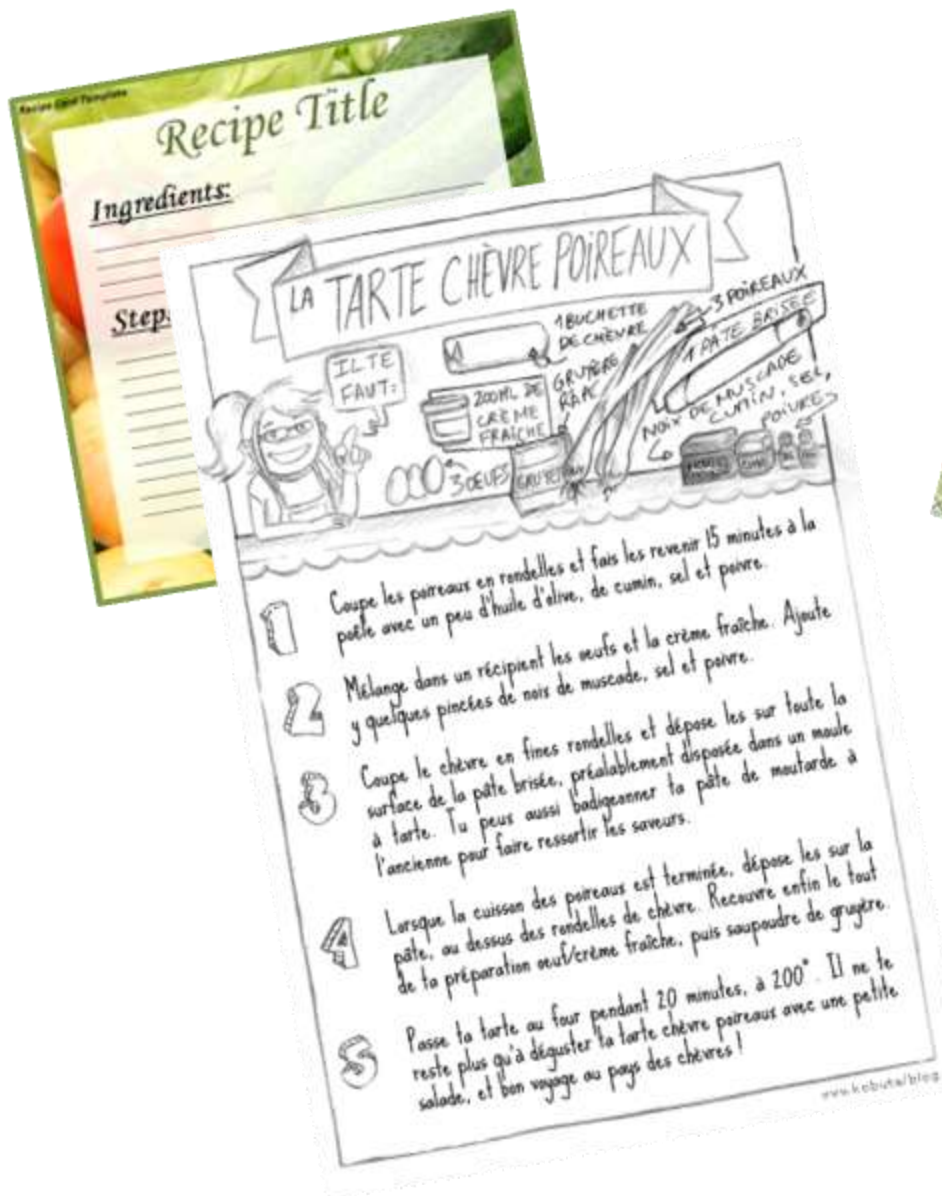 Recipe Card Template
Recipe Title
Ingredients:
Step
LA TARTE CHÈVRE POIREAUX
IL TE
FAUT:
1 BUCHETTE
DE CHÈVRE
3 POIREAUX
1 PATE BRISÉE
200ML DE
CRÈME
FRAICHE
GRUYÈRE
RAPÉ
NOIX DE MUSCADE
CUMIN, SEL,
POIVRES
3 OEUFS
1
Coupe les poireaux en rondelles et fais les revenir 15 minutes à la
poêle avec un peu d'huile d'olive, de cumin, sel et poivre.
2
Mélange dans un récipient les oeufs et la crème fraîche. Ajoute
y quelques pincées de nois de muscade, sel et poivre.
3
Coupe le chèvre en fines rondelles et dépose les sur toute la
surface de la pâte brisée, préalablement disposée dans un moule
à tarte. Tu peux aussi badigeonner ta pâte de moutarde à
l'ancienne pour faire ressortir les saveurs.
4
Lorsque la cuisson des poireaux est terminée, dépose les sur la
pâte, au dessus des rondelles de chèvre. Recouvre enfin le tout
de ta préparation oeuf/crème fraîche, puis saupoudre de gruyère.
5
Passe ta tarte au four pendant 20 minutes, à 200°. Il ne te
reste plus qu'à déguster ta tarte chèvre poireaux avec une petite
salade, et bon voyage au pays des chèvres !